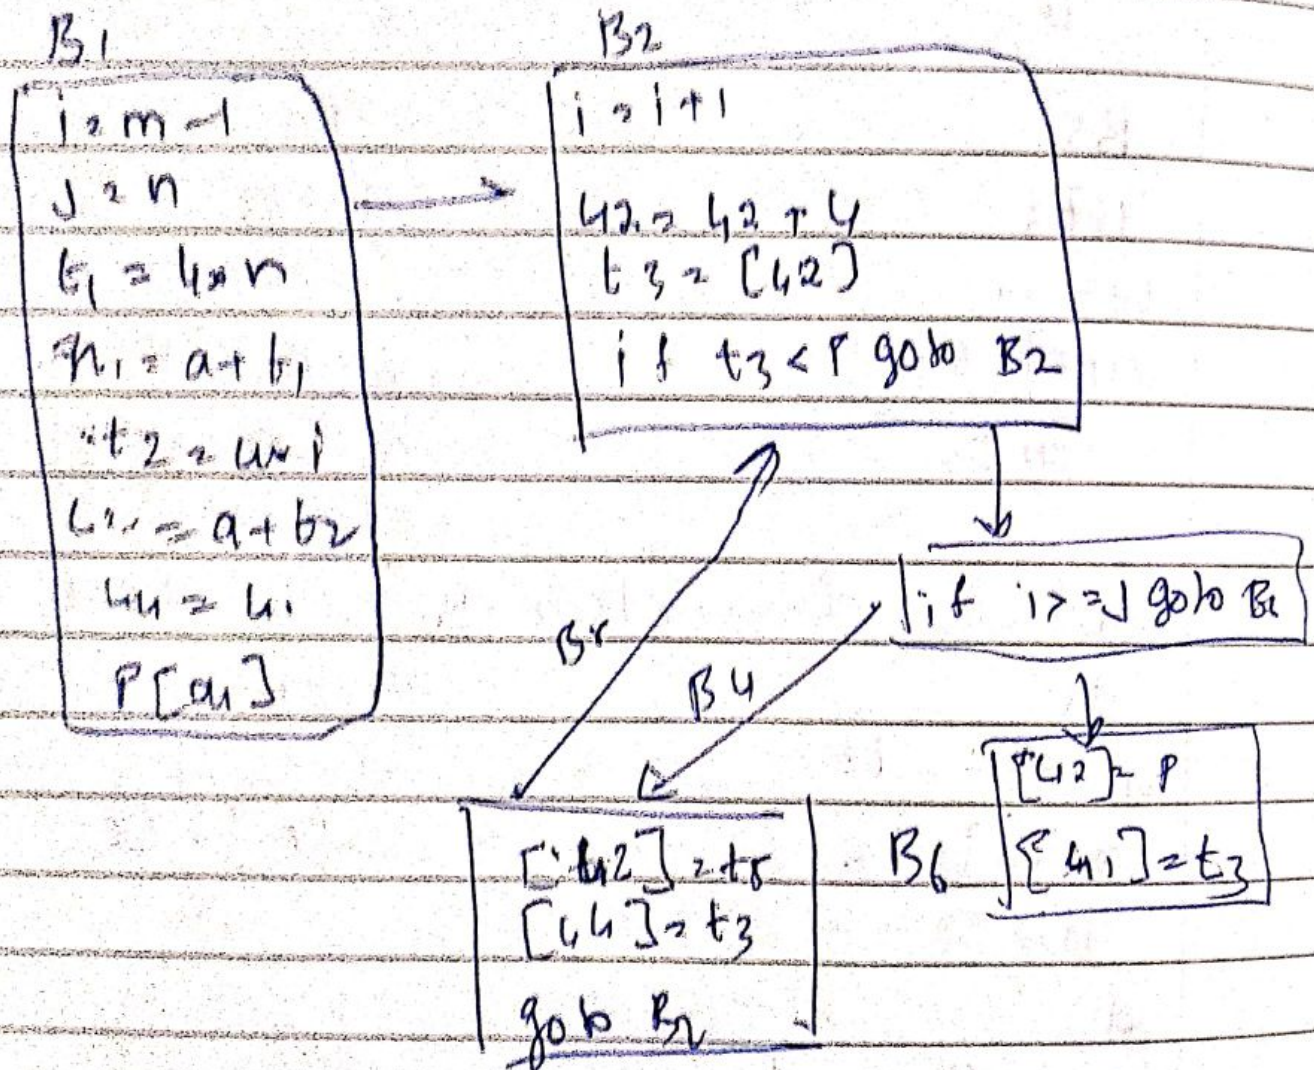 B1
i = m-1
j = n
t1 = 4*n
= a+t1
t2 = 4*i
= a+t2
P[a1]
B2
i = i+1
42 = 42 + 4
t3 = [42]
if t3 < P goto B2
if i >= J goto B6
B5
B4
[42] = t5
[44] = t3
goto B2
B6
[42] = P
[41] = t3